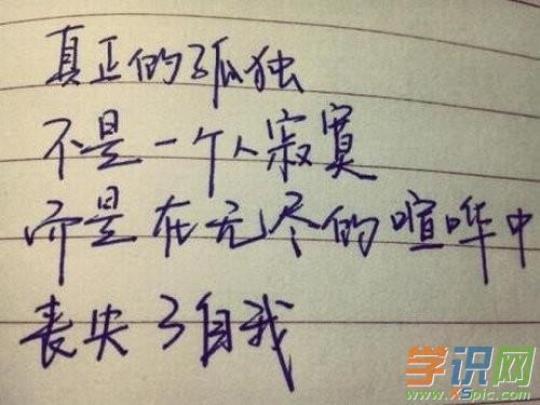 真正的孤独
不是一个人寂寞
而是在无尽的喧哗中
丧失了自我
学识网
www.XSpic.com